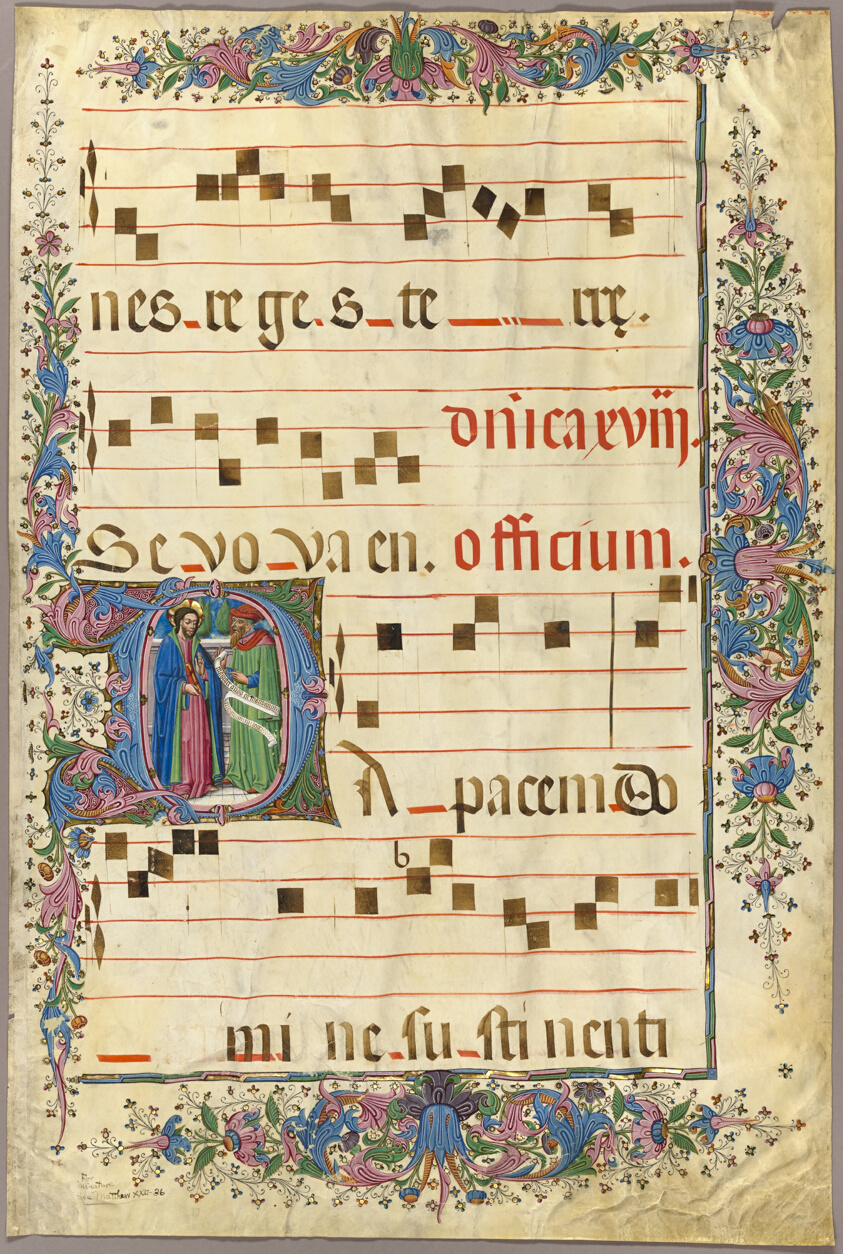 nes re ge s te rrę.
dñica xviij.
Se vo va en. officium.
DA pacem do
mi ne su sti nenti
b
Matthew XXII-36